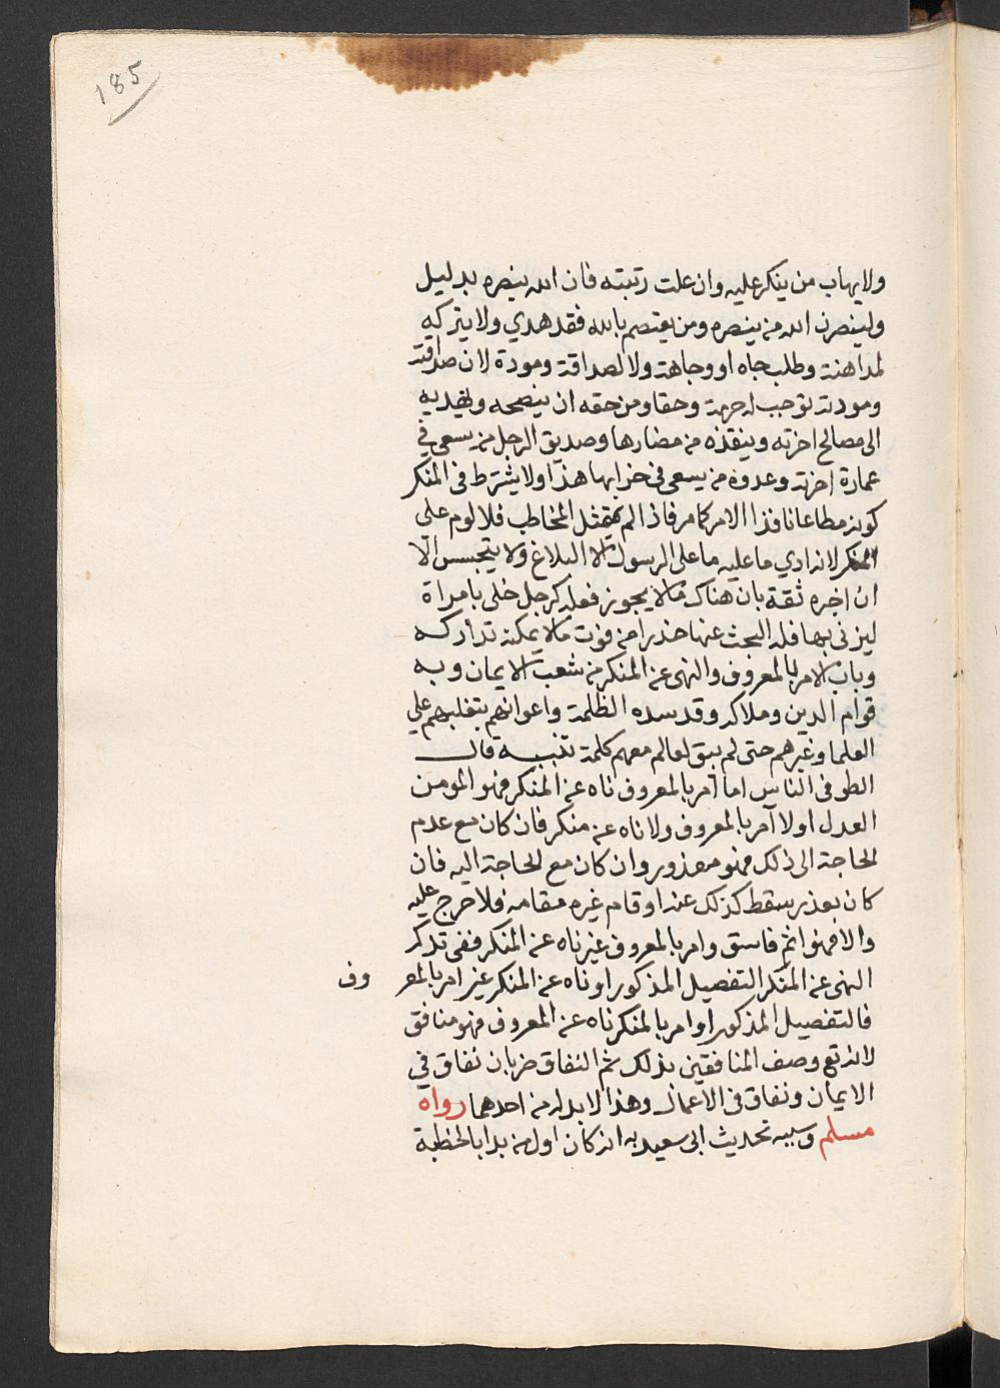 185
ولا يهاب من ينكر عليه وان علت رتبته فان الله ينصره بدليل
ولينصرن الله من ينصره ومن يعتصم بالله فقد هدي ولا يتركه
لمداهنة وطلب جاه او وجاهة ولا لصداقة ومودة لان صداقته
ومودته توجب له حرمة وحقا ومن حقه ان ينصحه ويهديه
الى مصالح اخرته وينقذه من مضارها وصديق الرجل من يسعى في
عمارة اخرته وعدوه من يسعى في خرابها هذا ولا يشترط في المنكر
كونه مطاعا نافذ الامر كما مر فاذا لم يمتثل المخاطب فلا لوم على
المنكر لانه ادي ما عليه ما على الرسول الا البلاغ ولا يتجسس الا
ان اخبره ثقة بان هناك مالا يجوز فعله كرجل خلى بامراة
ليزني بها فله البحث عنها حذرا من فوت مالا يمكنه تداركه
وباب الامر بالمعروف والنهى عن المنكر من شعب الايمان وبه
قوام الدين وملاكه وقد سده الظلمة واعوانهم بتغلبهم علي
العلما وغيرهم حتى لم يبق لعالم معهم كلمة تنبيه قال
الطوفى الناس اما آمر بالمعروف ناه عن المنكر فهو المومن
العدل اولا آمر بالمعروف ولا ناه عن منكر فان كان مع عدم
الحاجة الى ذلك فهو معذور وان كان مع الحاجة اليه فان
كان بعذر سقط كذلك عنه او قام غيره مقامه فلا حرج عليه
والا فهو اثم فاسق وامر بالمعروف غير ناه عن المنكر ففي تدكر
النهى عن المنكر التفصيل المذكور او ناه عن المنكر غير امر بالمعروف
فالتفصيل المذكور او امر بالمنكر ناه عن المعروف فهو منافق
لانه تع وصف المنافقين بذلك ثم النفاق ضربان نفاق في
الايمان ونفاق فى الاعمال وهذا لا بد له من احدهما رواه
مسلم وسببه تحديث ابى سعيد به انه كان اول من بدا بالخطبة